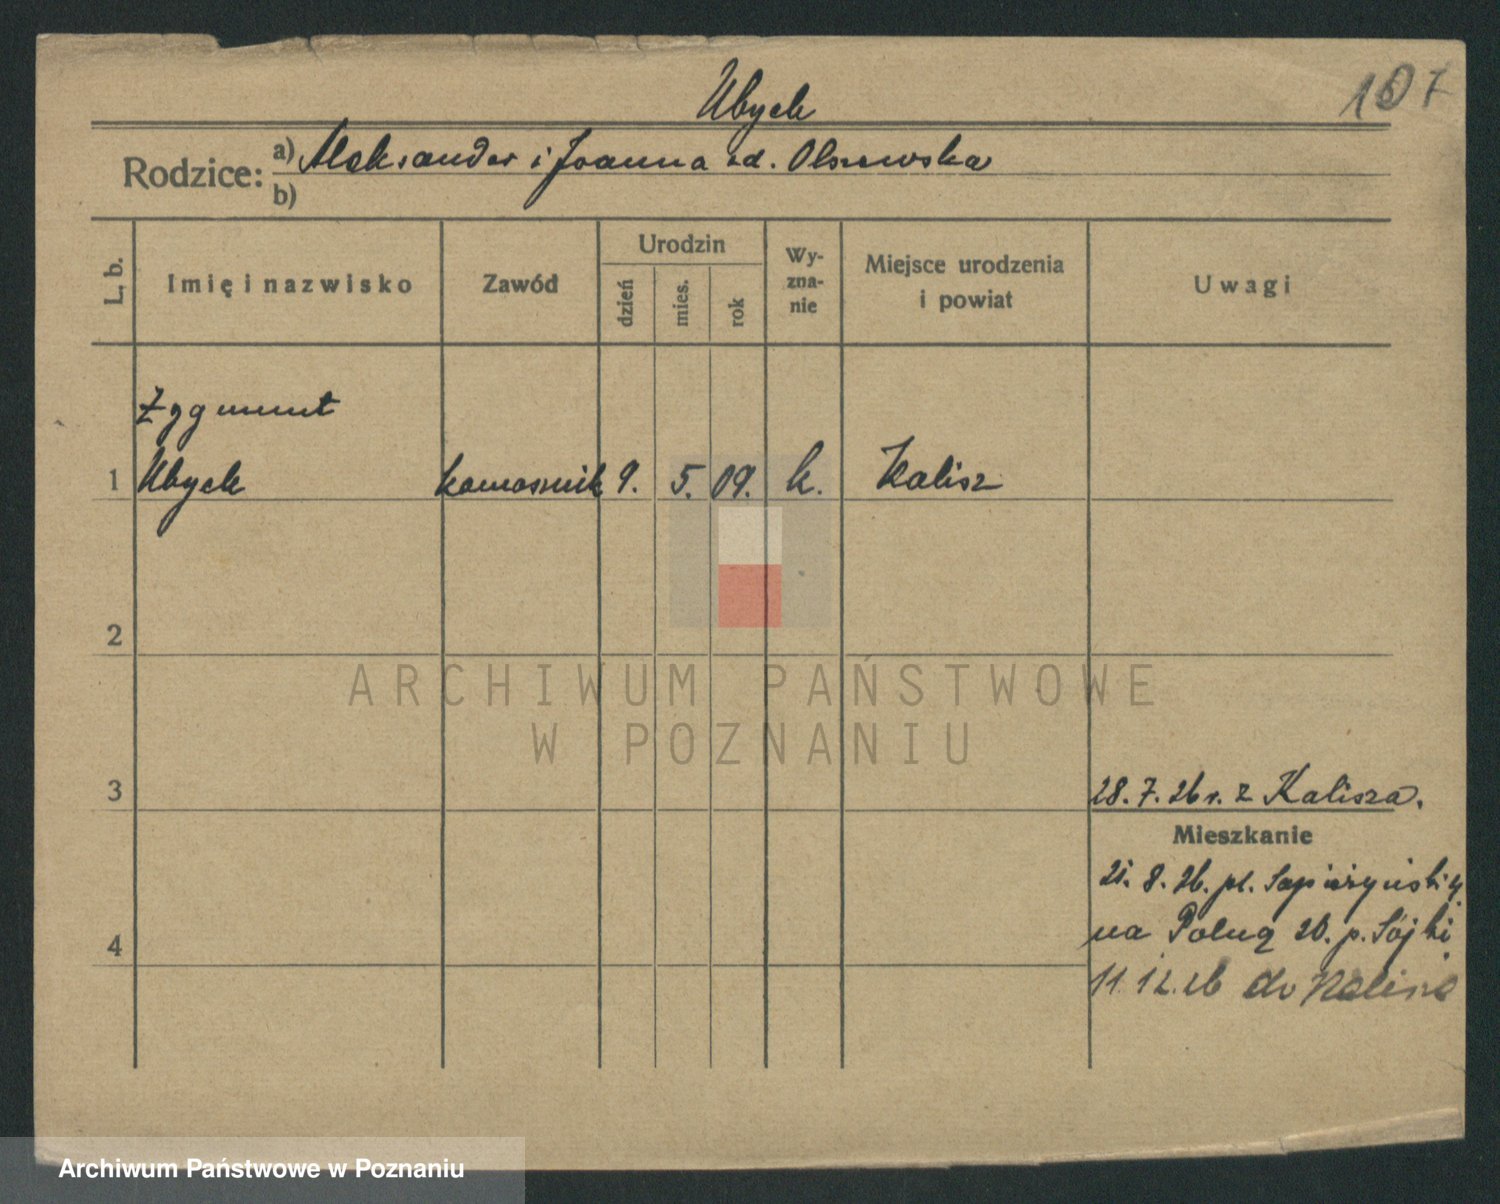 Ubych
107
Rodzice: a) Aleksander i Joanna zd. Olszewska
b)
L. b.
Imię i nazwisko
Zawód
Urodzin
dzień
mies.
rok
Wy-
zna-
nie
Miejsce urodzenia
i powiat
Uwagi
Zygmunt
1 Ubych kamasznik 9. 5. 09. k. Kalisz
2
ARCHIWUM PAŃSTWOWE
W POZNANIU
3
28.7.26 r. z Kalisza.
Mieszkanie
21.8.26. pl. Sapieżyński
4
na Polną 20. p. Sójki
11.12.26 do Kalisza
Archiwum Państwowe w Poznaniu